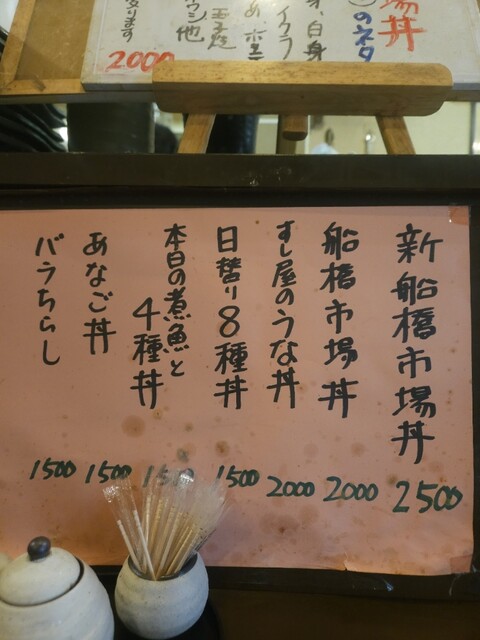 場丼
のネタ
白身
イクラ
2000
新船橋市場丼
2500
船橋市場丼
2000
すし屋のうな丼
2000
日替り8種丼
1500
本日の煮魚と
4種丼
1500
あなご丼
1500
バラちらし
1500